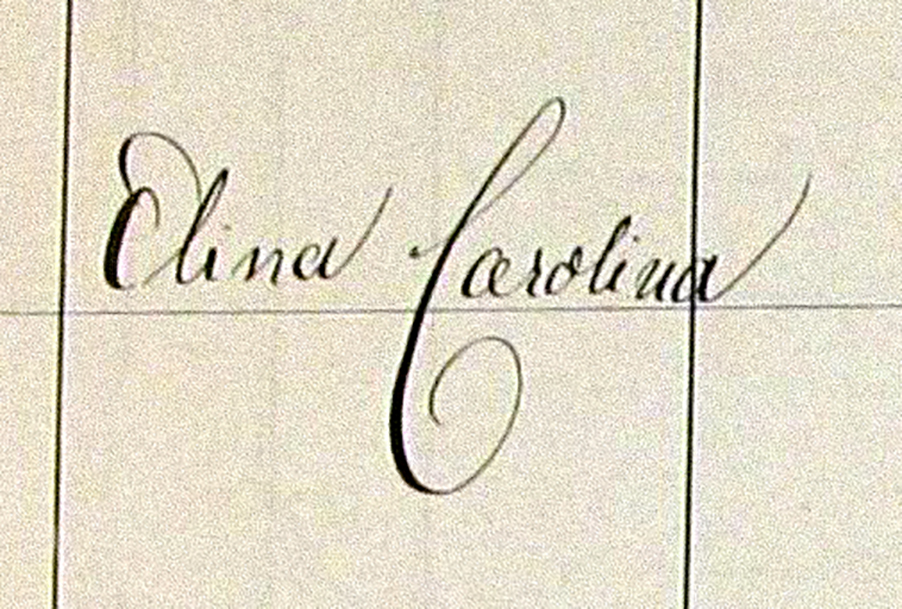 Elina Carolina